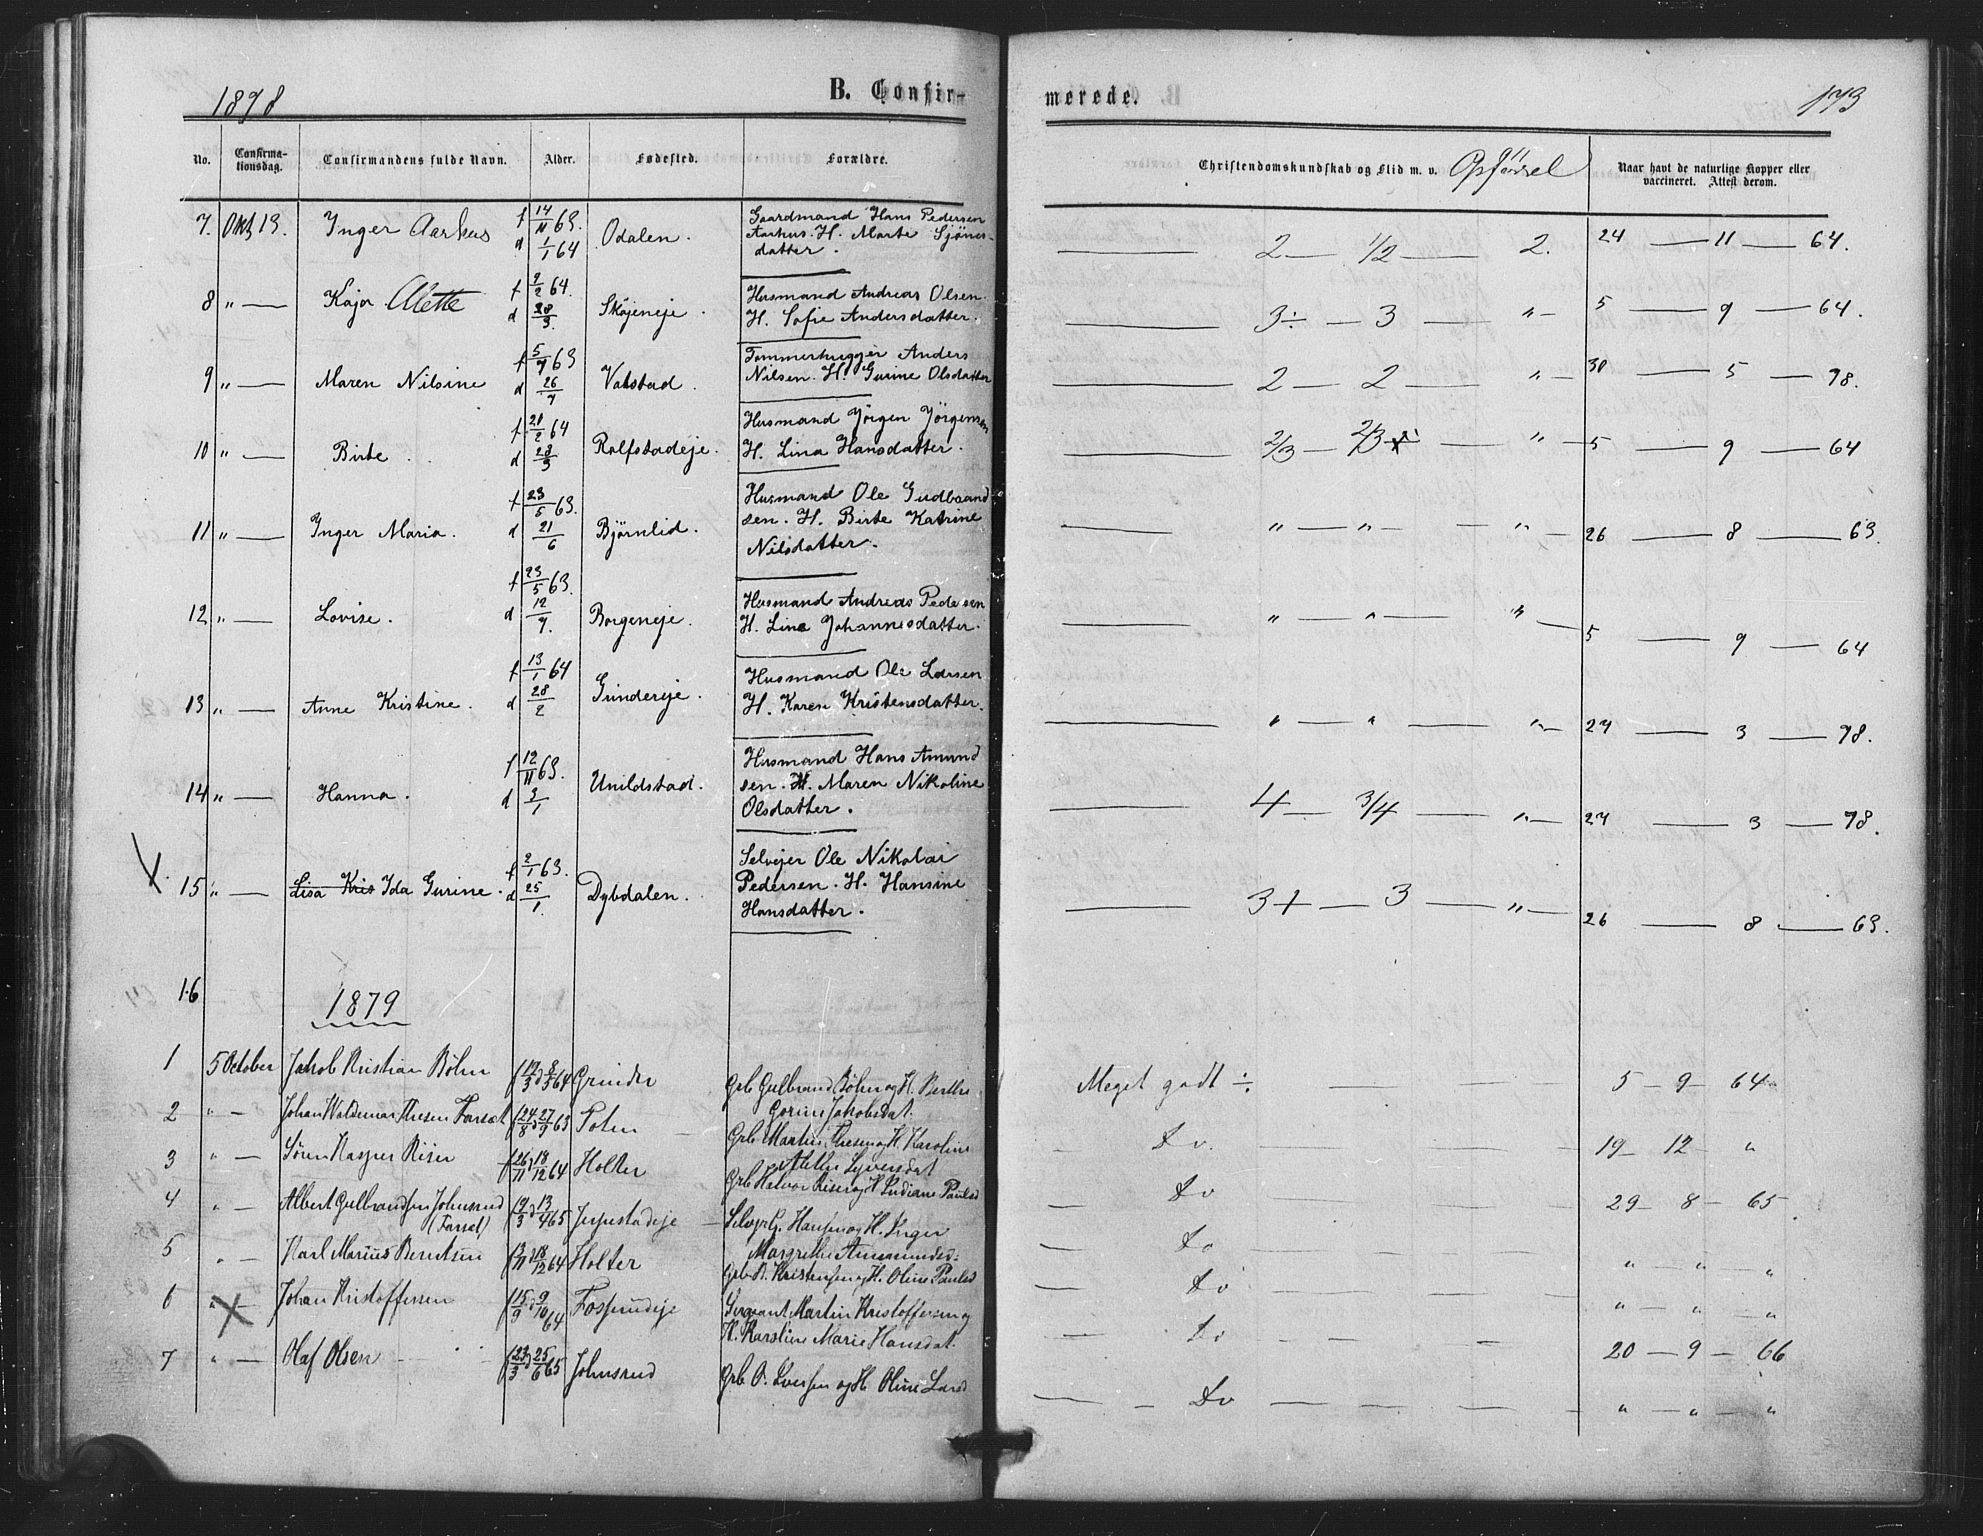 1878
B. Confir-
merede.
173
No.
Confirma-
tionsdag.
Confirmandens fulde Navn.
Alder.
Fødested.
Forældre.
Christendomskundskab og Flid m. v. Opførsel
Naar havt de naturlige Kopper eller
vaccineret. Attest derom.
7. Okt 13. Inger Aarhus f 14/11 63. d 1/1 64 Odalen. Gaardmand Hans Pedersen
Aarhus. H. Marte
datter.
2 — 1/2 — 2. 24 — 11 — 64.
8 " — Kaja Alette f 2/2 64. d 28/3. Skøjeneje. Husmand Andreas Olsen.
H. Sofie Andersdatter.
3÷ — 3 — " — 5 — 9 — 64.
9 " — Maren Nilsine f 5/7 63 d 26/7 Valstad. Tømmerhugger Anders
Nilsen. H. Gurine Olsdatter
2 — 2 — " — 30 — 5 — 78.
10 " — Birte f. 21/2 64 d 28/3 Rolfstadeje. Husmand Jörgen Jörgensen
H. Lina Hansdatter.
2/3 — 2/3 — " — 5 — 9 — 64
11 " — Inger Maria. f 23/5 63. d 21/6 Bjørnlid. Husmand Ole Gudbrand
sen. H. Birte Katrine
Nilsdatter.
" — " — " — 26 — 8 — 63.
12 " — Lovise. f 23/5 63. d 12/7. Borgeneje. Husmand Andreas Pedersen
H. Line Johannesdatter.
" — " — " — 5 — 9 — 64
13 " — Anne Kristine. f 13/1 64 d 28/2 Grindereje. Husmand Ole Larsen
H. Karen Kristensdatter.
" — " — " — 27 — 3 — 78.
14 " — Hanna. f 12/11 63. d 3/1 Unildstad. Husmand Hans Amund
sen. H. Maren Nikoline
Olsdatter.
4 — 3/4 — " — 27 — 3 — 78.
15 " — Lisa Kris Ida Gurine. f 2/1 63. d 25/1. Dybdalen. Selvejer Ole Nikolai
Pedersen. H. Hansine
Hansdatter.
3+ — 3 — " — 26 — 8 — 63.
16
1879
1 5 October Jakob Kristian Bøhn Grinder Grb Gulbrand Bøhn og H. Berthe
Gorine Jakobsdat.
Meget godt ÷ 5 — 9 — 64
2 " — Johan Waldemar Thesen Farsæt f 24/8 d 27/9 63 Grb Martin Thesen og H Karoline
Mette Syversdat
Do. 19 — 12 — "
3 " — Søren Kasper Riser f 26/11 d 18/12 64 Holter Grb Halvor Riser og H Paulsd
Do 29 — 8 — 65.
4 " — Albert Gulbrandsen Johnsrud
(Farsæt) d 13/4 65 Selvejer G. Hansen og H. Inger
Margrethe Amundsd.
Do " — " — "
5 " — Karl Marius Berntsen d 18/12 64 Holter Grb B. Kristensen og H. Oline Paulsd
Do " — " — "
6 " — Johan Kristoffersen f 15/9 d 9/10 64 Fosserudeje Sergeant Martin Kristoffersen og
H. Karoline Marie Hansdat.
Do 20 — 9 — 66
7 " — Olaf Olsen f 23/3 d 25/6 65 Johnsrud Grb O. Iversen og H Oline Larsd
Do " — " — "